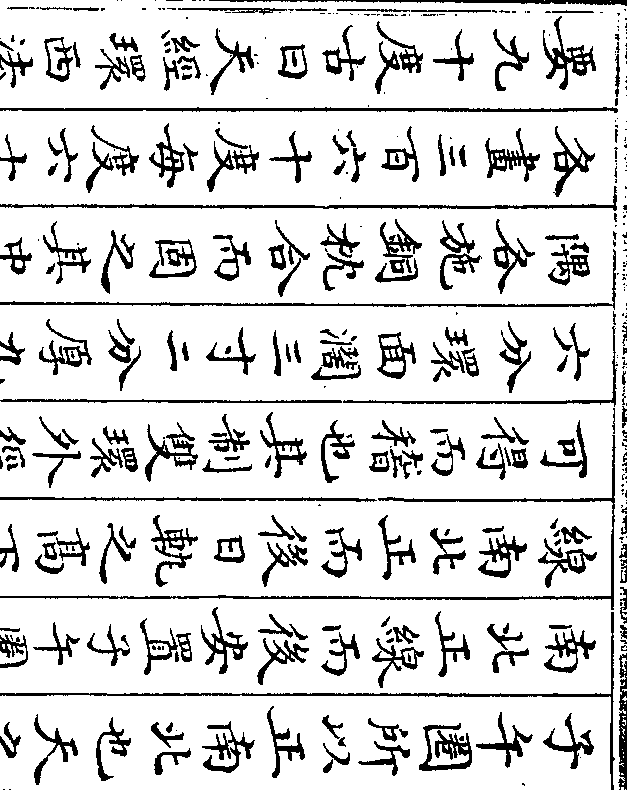 子午圈所以正南北也天之
南北正線而後安置子午圈
線南北正而後日軌之高下
可得而稽也其制雙環外經
六分環面濶三寸二分厚九
隅各施銅枕合而固之其中
各畫三百六十度每度六十
要九十度古曰天經環西法